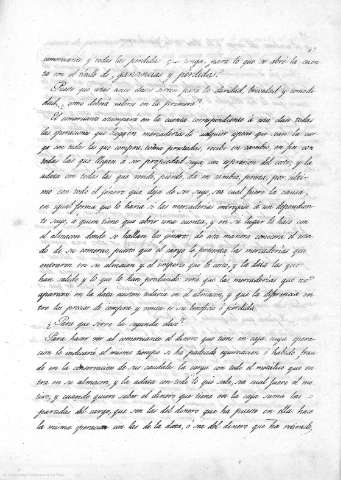 comerciante y todas las perdidas que tenga, para lo que se abre la cuen
ta con el titulo de, ganancias y perdidas.
Puesto que estas cinco clases sirven para la claridad, brevedad y comodi
dad, ¿ como deberia valerse en la primera?
El comerciante acompaña en la cuenta correspondiente á una clase todas
las operaciones que hagan mercaderias de cualquier especie que sean: la car
ga con todas las que compra, toma prestadas, recibe en cambio, en fin con
todas las que llegan á ser propiedad suya, con espresion del coste; y la
adata con todas las que vende, pierde, dá en cambio, presta, por ulti
mo con todo el género que deja de ser suyo, sea cual fuere la causa,
en igual forma que lo haria si las mercaderias entregase á un dependien
te suyo, á quien tiene que abrir una cuenta, y en su lugar lo hace con
el almacen donde se hallan los géneros: de esta manera conocerá el esta
do de su comercio, puesto que el cargo le presenta las mercaderias que
entraron en su almacen y el importe que le costó, y la data las que
han salido y lo que le han producido: verá que las mercaderias que no
aparecen en la data existen todavia en el almacen, y que la diferencia en
tre los precios de compra y venta es su beneficio ó pérdida.
¿Para que sirve la segunda clase?
Para hacer ver al comerciante el dinero que tiene en caja cuya opera
cion le indicará al mismo tiempo si ha padecido equivocacion ó habido frau
de en la conservacion de sus caudales: la carga con todo el metálico que en
tra en su almacen, y la adata con todo lo que sale, sea cual fuere el mo
tivo, y cuando quiere saber el dinero que tiene en la caja suma las
partidas del cargo, que son las del dinero que ha puesto en ella: hace
la misma operacion con las de la data, ó sea del dinero que ha retirado,